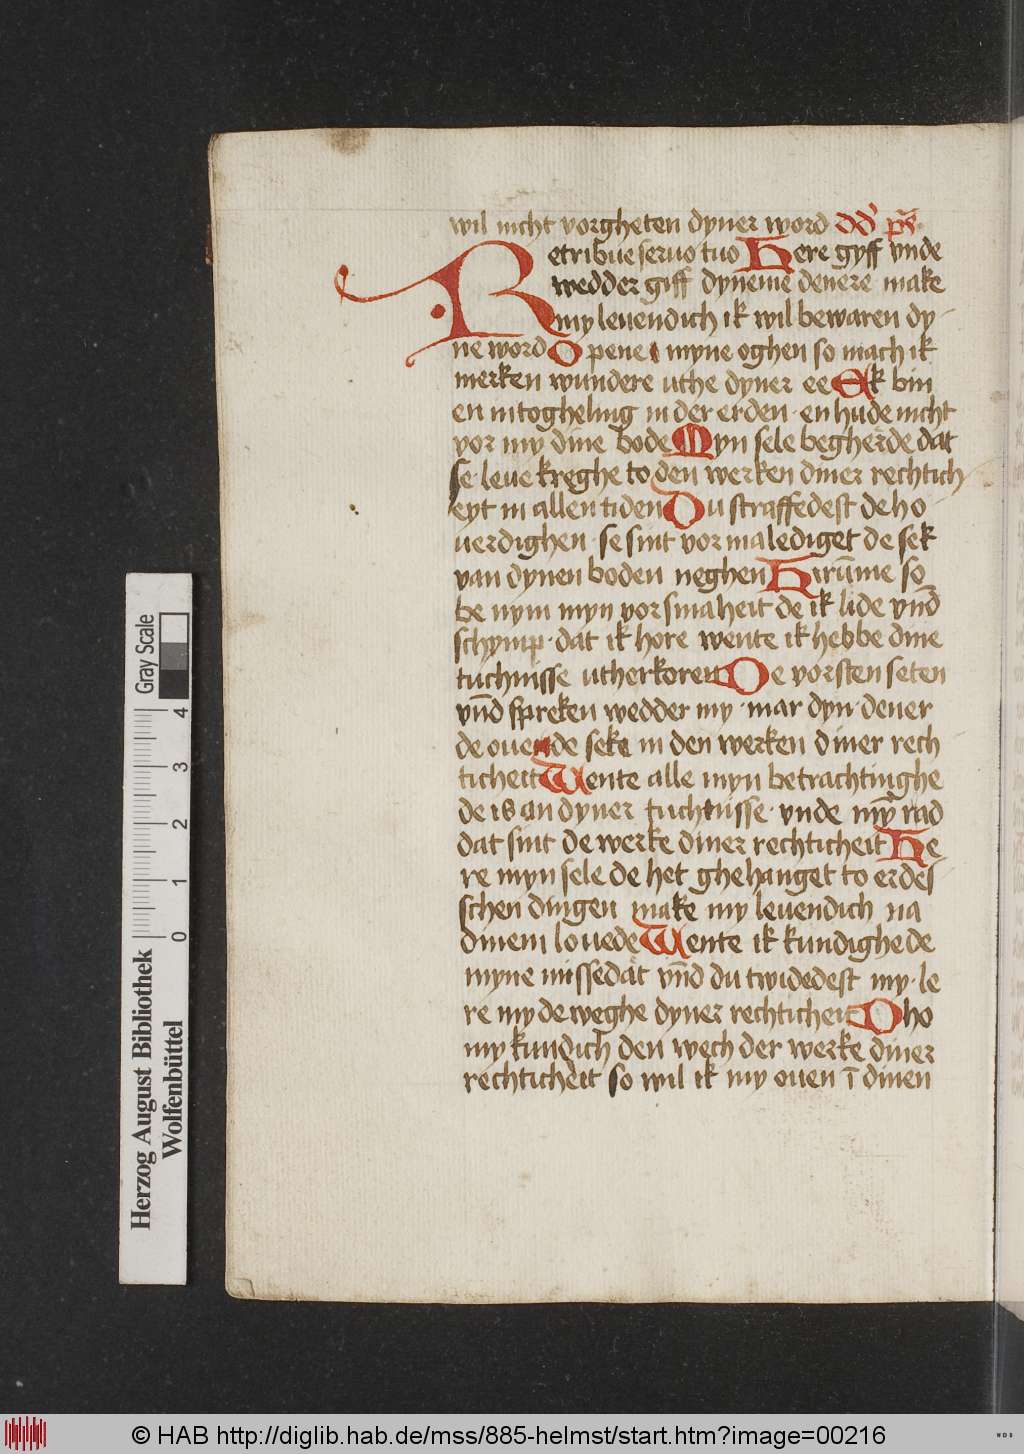 wil nicht vorgheten dyner word dd' ps
Retribue seruo tuo Here gyff vnde
wedder giff dyneme denere make
my leuendich ik wil bewaren dy-
ne word Opene myne oghen so mach ik
merken wundere uthe dyner ee Ek bin
en intogheling in der erden · en hude nicht
vor my dine bode Myn sele begherde dat
se leue kreghe to den werken diner rechtich
eyt in allen tiden Du straffedest de ho
uerdighen · se sint vormalediget de sek
van dynen boden neghen Hirūme so
be nym myn vorsmaheit de ik lide vn̄d
schymp · dat ik hore wente ik hebbe dine
tuchnisse utherkoren De vorsten seten
vn̄d spreken wedder my · mar dyn dener
de ouede seke in den werken diner rech
ticheit Wente alle myn betrachtinghe
de is an dyner tuchnisse · vnde my rad
dat sint de werke diner rechticheit He
re myn sele de het ghehanget to erdes
schen dingen make my leuendich na
dinem louede Wente ik kundighede
myne missedat vn̄d du twidedest my · le
re my de weghe dyner rechticheit Dho
my kundich den wech der werke diner
rechticheit so wil ik my ouen ī dinen
Gray Scale
0 1 2 3 4
Herzog August Bibliothek
Wolfenbüttel
© HAB http://diglib.hab.de/mss/885-helmst/start.htm?image=00216